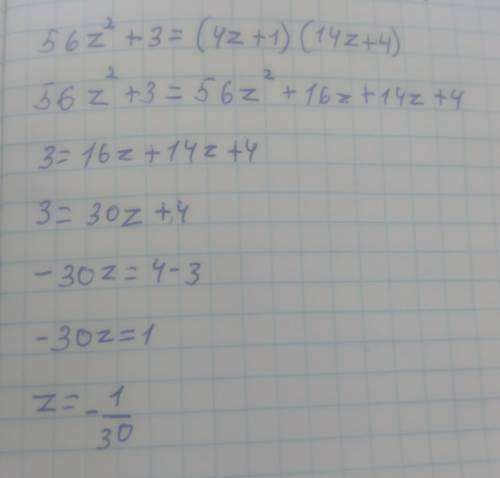 56z² + 3 = (4z + 1) (14z + 4)
56z² + 3 = 56z² + 16z + 14z + 4
3 = 16z + 14z + 4
3 = 30z + 4
- 30z = 4 - 3
- 30z = 1
z = - 1/30